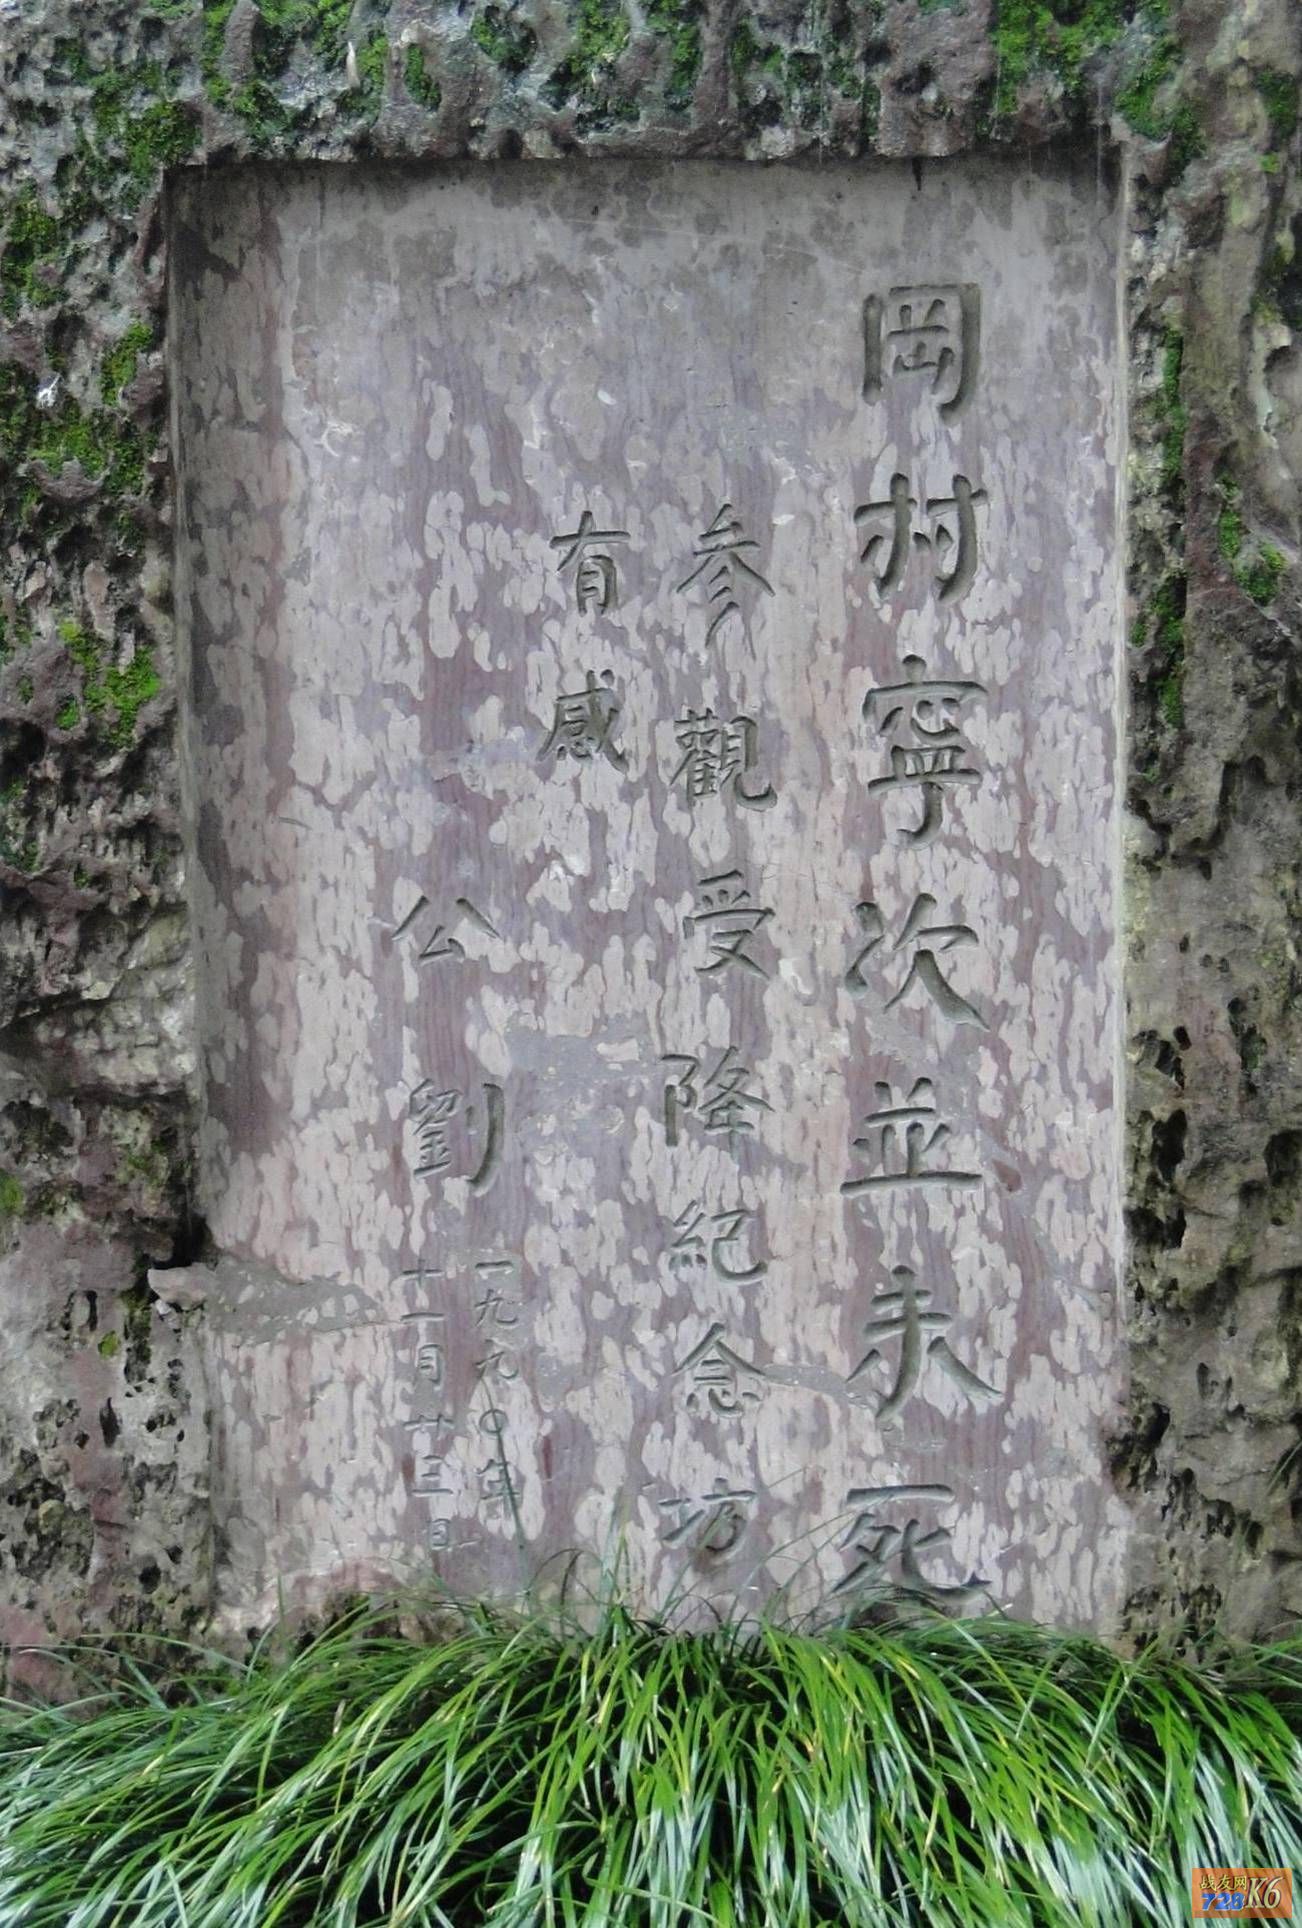 岡村寧次並未死
參觀受降紀念坊
有感
公劉
一九九〇年
十一月廿三日
战友网
728K6